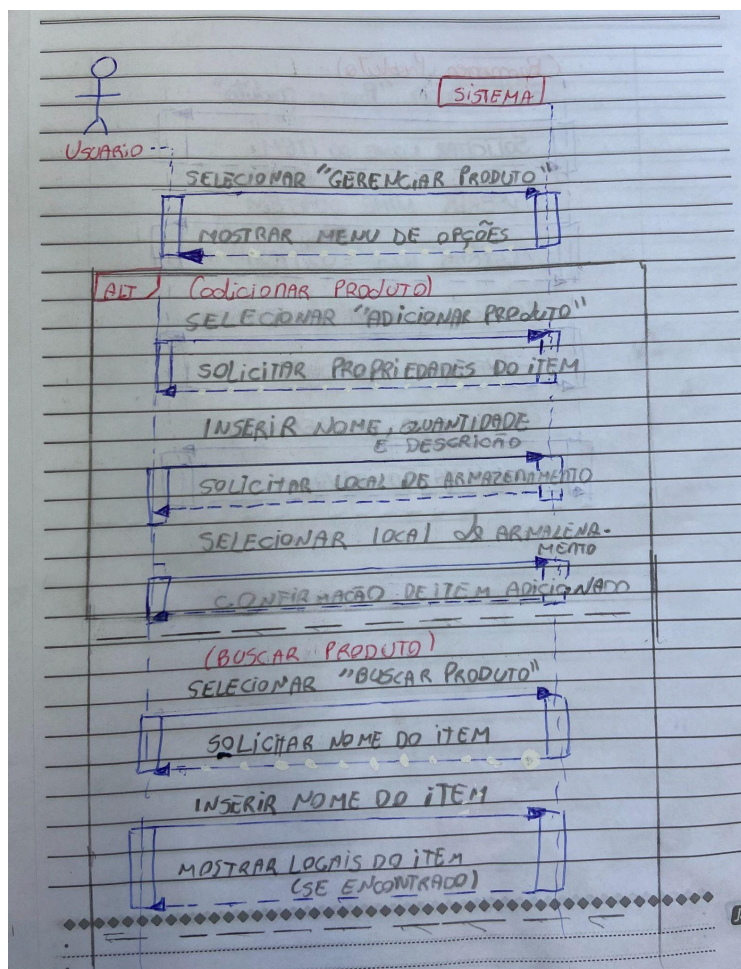 SISTEMA
USUARIO
SELECIONAR "GERENCIAR PRODUTO"
MOSTRAR MENU DE OPÇÕES
ALT
(adicionar PRODUTO)
SELECIONAR "ADICIONAR PRODUTO"
SOLICITAR PROPRIEDADES DO ITEM
INSERIR NOME, QUANTIDADE
E DESCRICÃO
SOLICITAR LOCAL DE ARMAZENAMENTO
SELECIONAR LOCAL de ARMAZENA-
MENTO
CONFIRMAÇÃO DE ITEM ADICIONADO
(BUSCAR PRODUTO)
SELECIONAR "BUSCAR PRODUTO"
SOLICITAR NOME DO ITEM
INSERIR NOME DO ITEM
MOSTRAR LOCAIS DO ITEM
(SE ENCONTRADO)